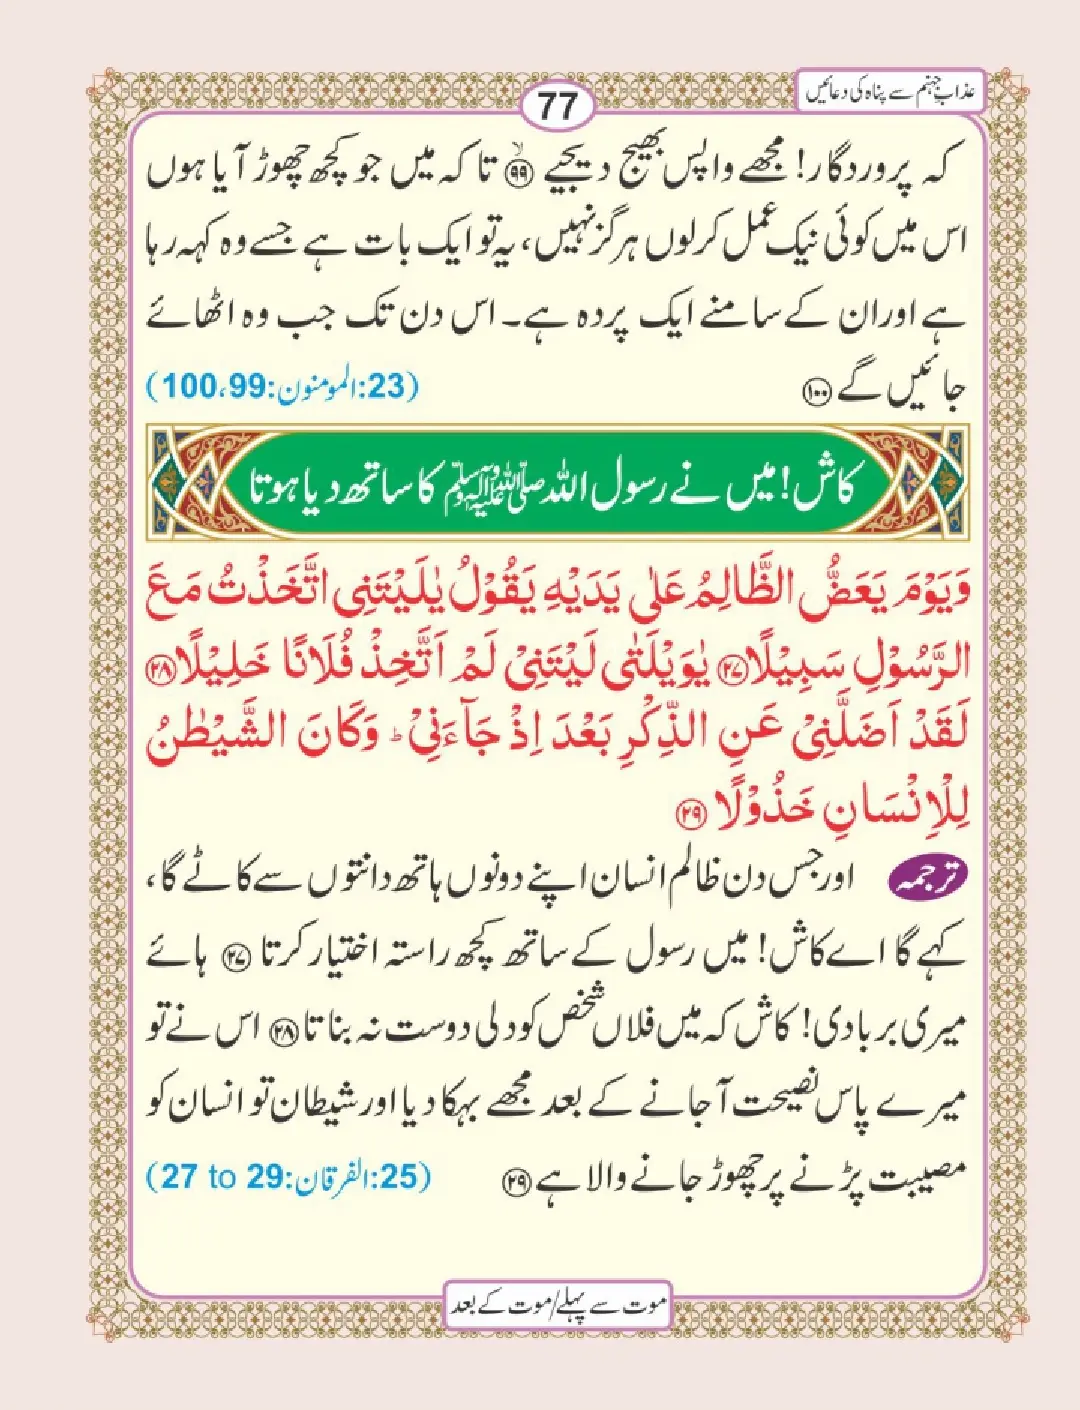 عذابِ جہنم سے پناہ کی دعائیں
77
کہ پروردگار! مجھے واپس بھیج دیجیے ۙ﴿۹۹﴾ تا کہ میں جو کچھ چھوڑ آیا ہوں
اس میں کوئی نیک عمل کرلوں ہرگز نہیں، یہ تو ایک بات ہے جسے وہ کہہ رہا
ہے اور ان کے سامنے ایک پردہ ہے۔ اس دن تک جب وہ اٹھائے
جائیں گے ﴿۱۰۰﴾ (23:المومنون:99،100)
کاش! میں نے رسول اللہ ﷺ کا ساتھ دیا ہوتا
وَيَوْمَ يَعَضُّ الظَّالِمُ عَلٰى يَدَيْهِ يَقُوْلُ يٰلَيْتَنِى اتَّخَذْتُ مَعَ
الرَّسُوْلِ سَبِيْلًا ﴿۲۷﴾ يٰوَيْلَتٰى لَيْتَنِىْ لَمْ اَتَّخِذْ فُلَانًا خَلِيْلًا ﴿۲۸﴾
لَقَدْ اَضَلَّنِىْ عَنِ الذِّكْرِ بَعْدَ اِذْ جَآءَنِىْ ؕ وَكَانَ الشَّيْطٰنُ
لِلْاِنْسَانِ خَذُوْلًا ﴿۲۹﴾
ترجمہ اور جس دن ظالم انسان اپنے دونوں ہاتھ دانتوں سے کاٹے گا،
کہے گا اے کاش! میں رسول کے ساتھ کچھ راستہ اختیار کرتا ﴿۲۷﴾ ہائے
میری بربادی! کاش کہ میں فلاں شخص کو دلی دوست نہ بناتا ﴿۲۸﴾ اس نے تو
میرے پاس نصیحت آجانے کے بعد مجھے بہکا دیا اور شیطان تو انسان کو
مصیبت پڑنے پر چھوڑ جانے والا ہے ﴿۲۹﴾ (25:الفرقان:27 to 29)
موت سے پہلے/موت کے بعد